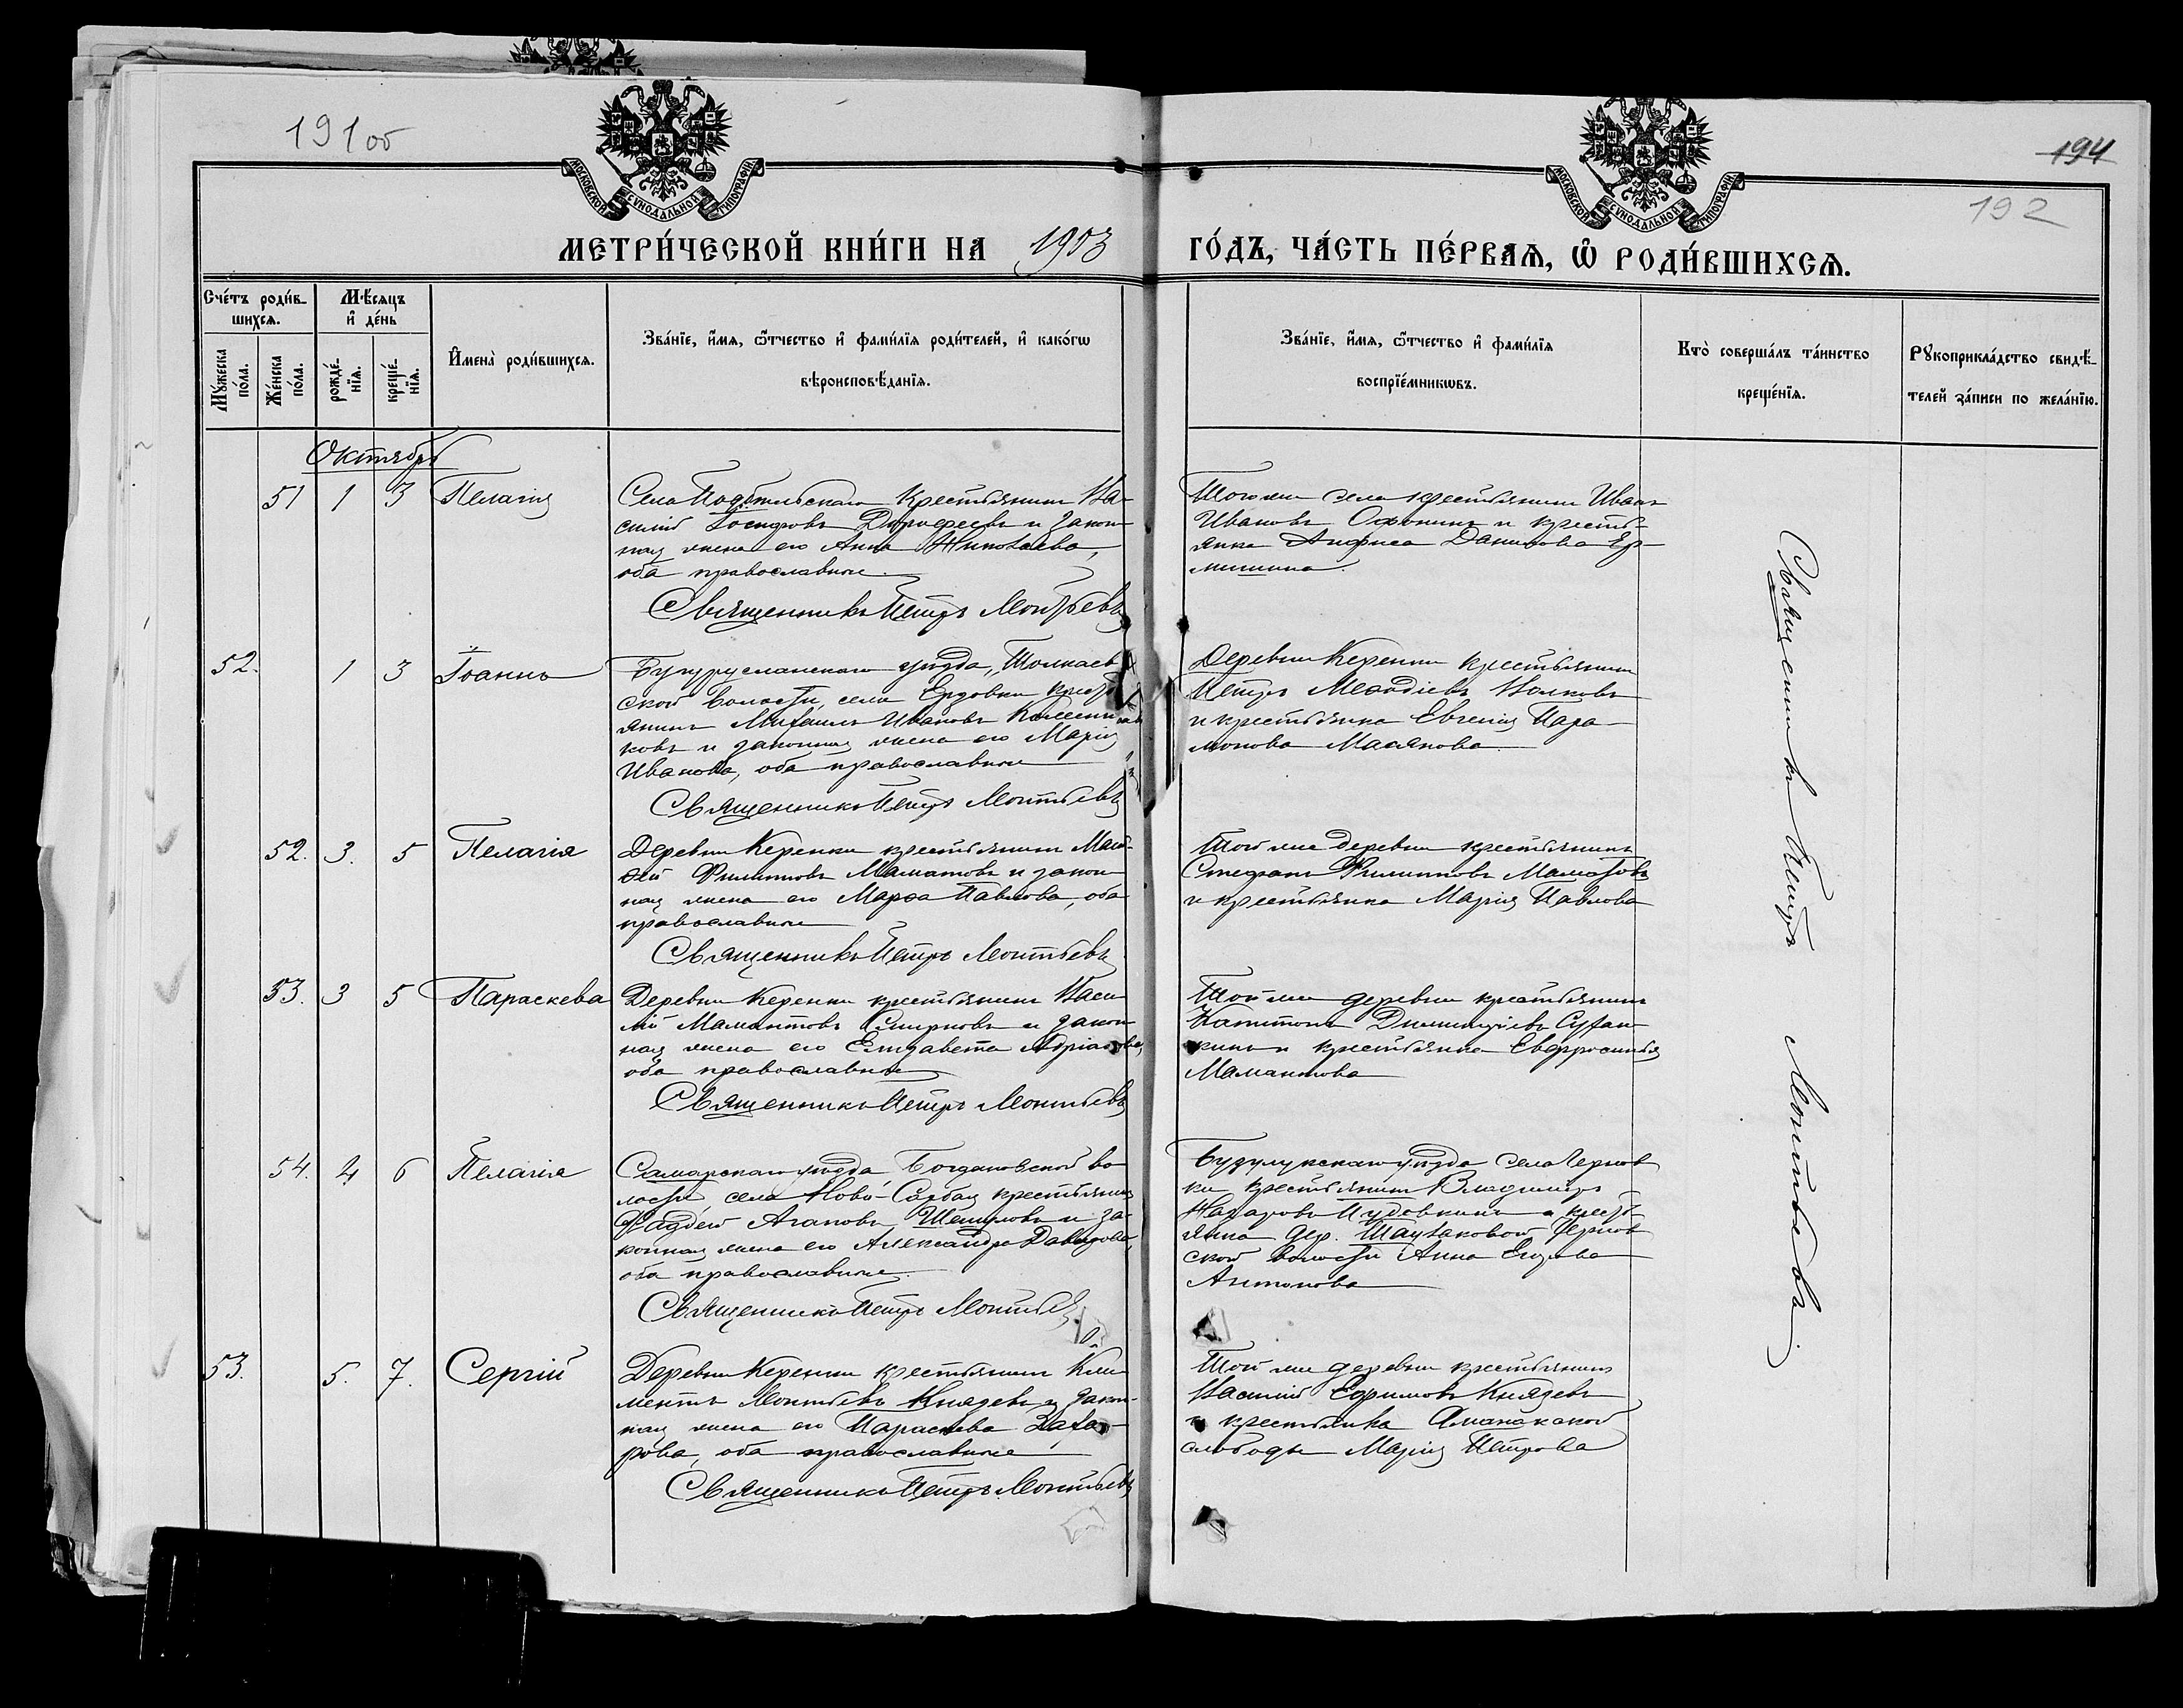 191 об
194
192
МОСКОВСКОЙ СѴНОДАЛЬНОЙ ТИПОГРАФІИ
МОСКОВСКОЙ СѴНОДАЛЬНОЙ ТИПОГРАФІИ
МЕТРИ́ЧЕСКОЙ КНИ́ГИ НА 1903 ГО́ДЪ, ЧА́СТЬ ПЕ́РВАѦ, Ѡ҆ РОДИ́ВШИХСѦ.
Сче́тъ роди́в-
шихсѧ.
Мꙋ́жеска
по́ла.
Же́нска
по́ла.
Мѣ́сѧцъ
и҆ де́нь
рожде́-
нїѧ.
креще́-
нїѧ.
И҆мена̀ роди́вшихсѧ.
Зва́нїе, и҆́мѧ, ѻ҆́тчество и҆ фами́лїѧ роди́телей, и҆ како́гѡ
вѣроисповѣ́данїѧ.
Зва́нїе, и҆́мѧ, ѻ҆́тчество и҆ фами́лїѧ
воспрїе́мникѡвъ.
Кто̀ соверша́лъ та́инство
креще́нїѧ.
Рꙋкоприкла́дство свидѣ́-
телей за́писи по жела́нїю.
Октябрь
51 1 3 Пелагія
Села Подбѣльскаго крестьянинъ Ва-
силій Іосифовъ Дорофеевъ и закон-
ная жена его Анна Николаева,
оба православные.
Священникъ Петръ Леонтьевъ
Того же села крестьянинъ Иванъ
Ивановъ Офонинъ и кресть-
янка Анфиса Данилова Ер-
мишина.
52. 1 3 Іоаннъ
Бугурусланскаго уѣзда, Толкаев-
ской волости, села Ерзовки крест-
янинъ Михаилъ Ивановъ Колесни-
ковъ и законная жена его Марія
Иванова, оба православные
Священникъ Петръ Леонтьевъ
Деревни Керенки крестьянинъ
Петръ Меѳодіевъ Волковъ
и крестьянка Евгенія Пара-
монова Маслякова.
52. 3. 5 Пелагія
Деревни Керенки крестьянинъ Мат-
ѳей Филипповъ Маматовъ и закон-
ная жена его Марѳа Павлова, оба
православные
Священникъ Петръ Леонтьевъ
Той же деревни крестьянинъ
Стефанъ Филипповъ Маматовъ
и крестьянка Марія Павлова
53. 3 5 Параскева
Деревни Керенки крестьянинъ Васи-
лій Мамонтовъ Смирновъ и закон-
ная жена его Елизавета Адріанова,
оба православные
Священникъ Петръ Леонтьевъ
Той же деревни крестьянинъ
Капитонъ Димитріевъ Сухан-
кинъ и крестьянка Евфросинія
Мамантова
54. 4 6 Пелагія
Самарскаго уѣзда Богдановской во-
лости села Ново-Сарбая крестьянинъ
Фаддей Агаповъ и за-
конная жена его Александра Давыдова,
оба православные.
Священникъ Петръ Леонтьевъ
Бузулукскаго уѣзда села Чернов-
ки крестьянинъ Владимиръ
Назаровъ Пудовкинъ и крестъ-
янка дер. Чернов-
ской волости Анна Егорова
Антонова
53. 5. 7. Сергій
Деревни Керенки крестьянинъ Кли-
ментъ Леонтьевъ Князевъ и закон-
ная жена его Параскева Заха-
рова, оба православные
Священникъ Петръ Леонтьевъ
Той же деревни крестьянинъ
Василій Ефимовъ Князевъ
и крестьянка Аманакской
слободы Марія Петрова
Священникъ Петръ Леонтьевъ.